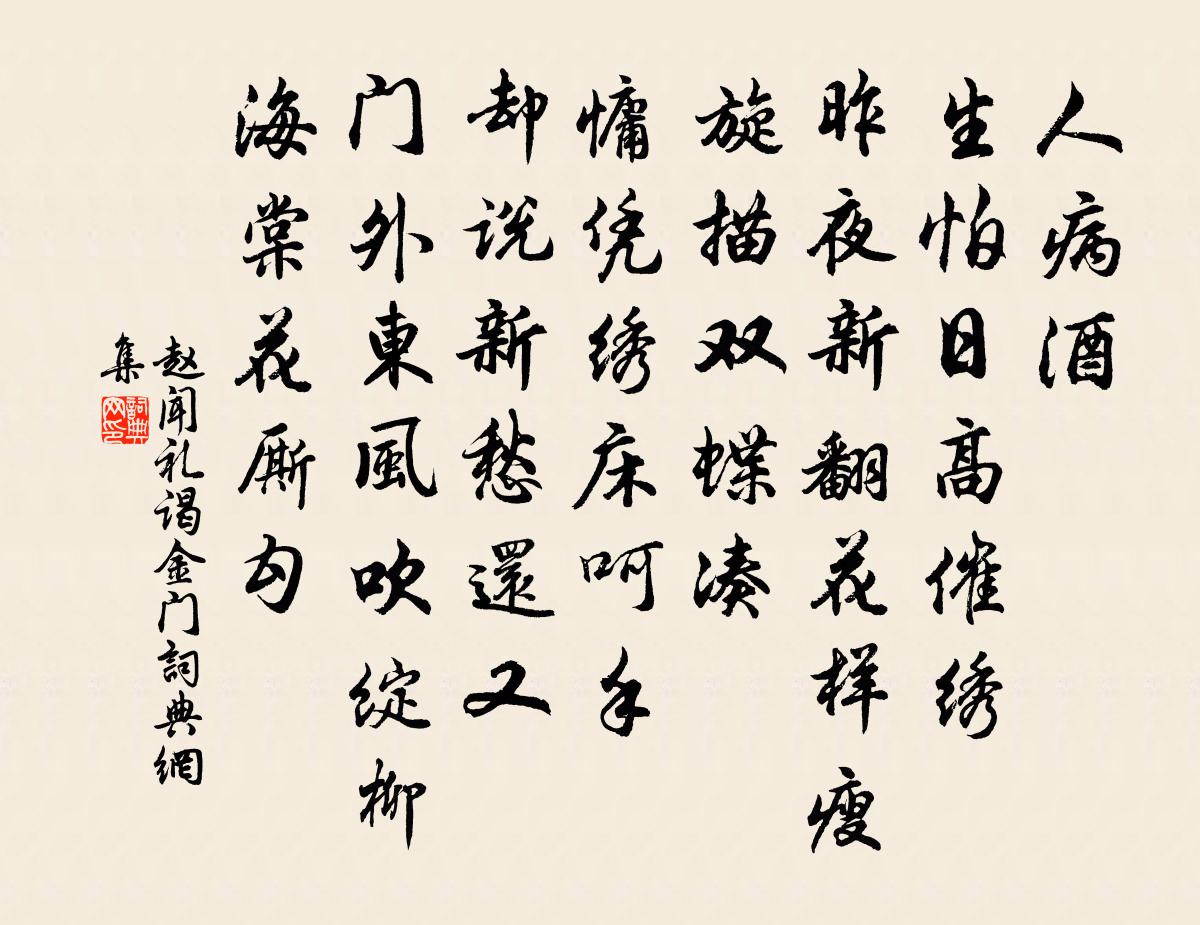 人病酒
生怕日高催绣
昨夜新翻花样瘦
旋描双蝶凑
慵凭绣床呵手
却说新愁還又
门外東風吹绽柳
海棠花厮勾
赵闻礼谒金门詞典網
集
詞典
网印